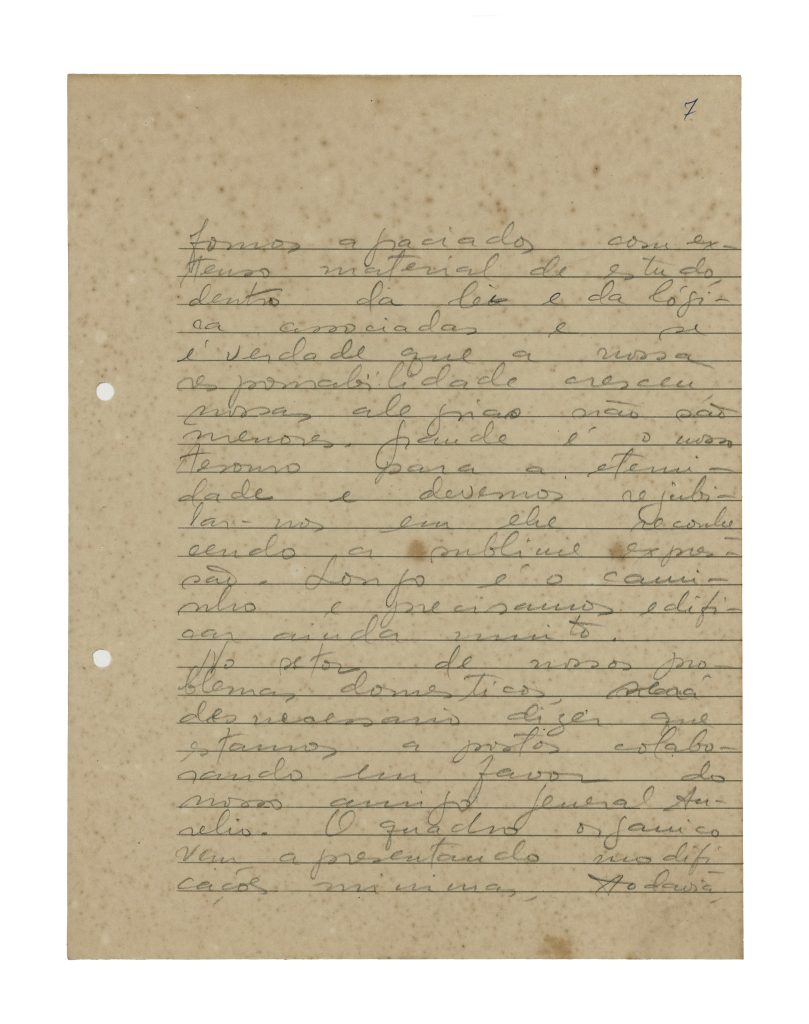 7
Fomos agraciados com ex-
tenso material de estudo,
dentro da lei e da lógi-
ca associadas e se
é verdade que a nossa
responsabilidade cresceu,
nossas alegrias não são
menores. Grande é o nosso
tesouro para a eterni-
dade e devemos rejubi-
lar-nos em ele reconhe
cendo a sublime expres-
são. Longo é o cami-
nho e precisamos edifi-
car ainda muito.
No setor de nossos pro-
blemas domesticos, será
desnecessario dizer que
estamos a postos colabo-
rando em favor do
nosso amigo general Au-
relio. O quadro organico
vem apresentando modifi
cações minimas, todavia,